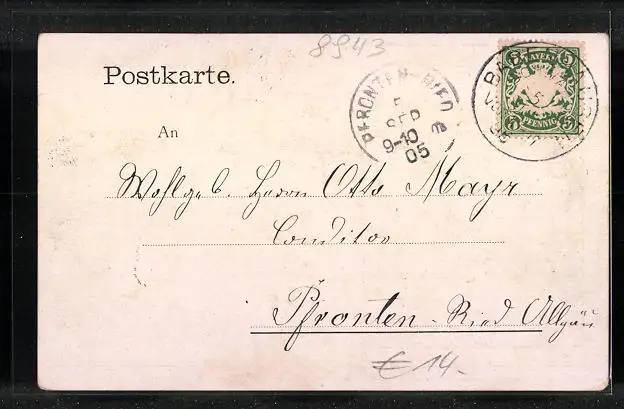 8943
Postkarte.
PFRONTEN-RIED
5
SEP
9-10
05
BAYERN
5
PFENNIG
An
Wohlgeb. Herrn Otto Mayr
Conditor
Pfronten-Ried Allgäu
€ 14.-